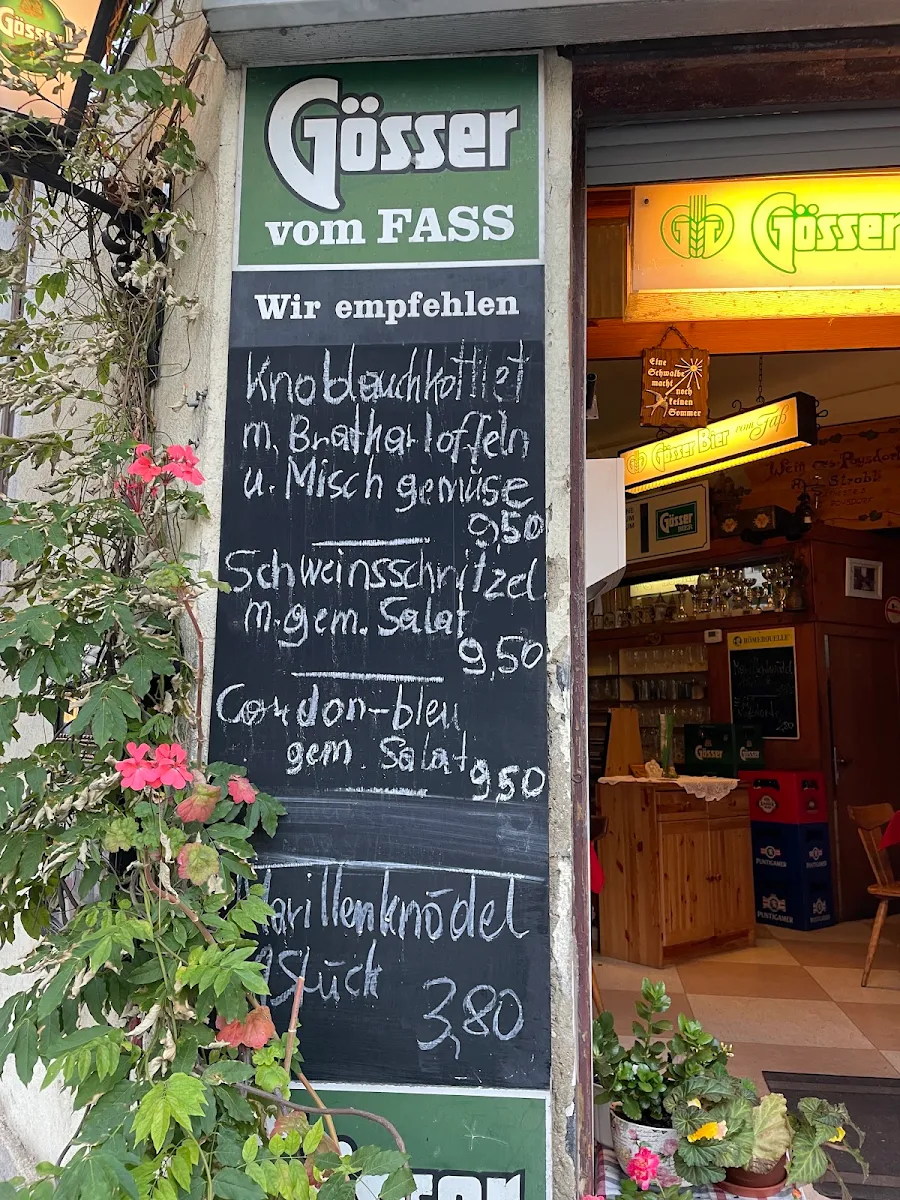 Gösser
Gösser
vom FASS
Wir empfehlen
Knoblauchkottlet
m. Bratkartoffeln
u. Misch gemüse
9,50
Schweinsschnitzel
m. gem. Salat
9,50
Cordon-bleu
gem. Salat
9,50
Marillenknödel
Stück
3,80
Gösser
Eine
Schwalbe
macht noch
keinen
Sommer
Gösser Bier vom Faß
Gösser
RÖMERQUELLE
Gösser
Gösser
PUNTIGAMER
PUNTIGAMER
PUNTIGAMER
PUNTIGAMER